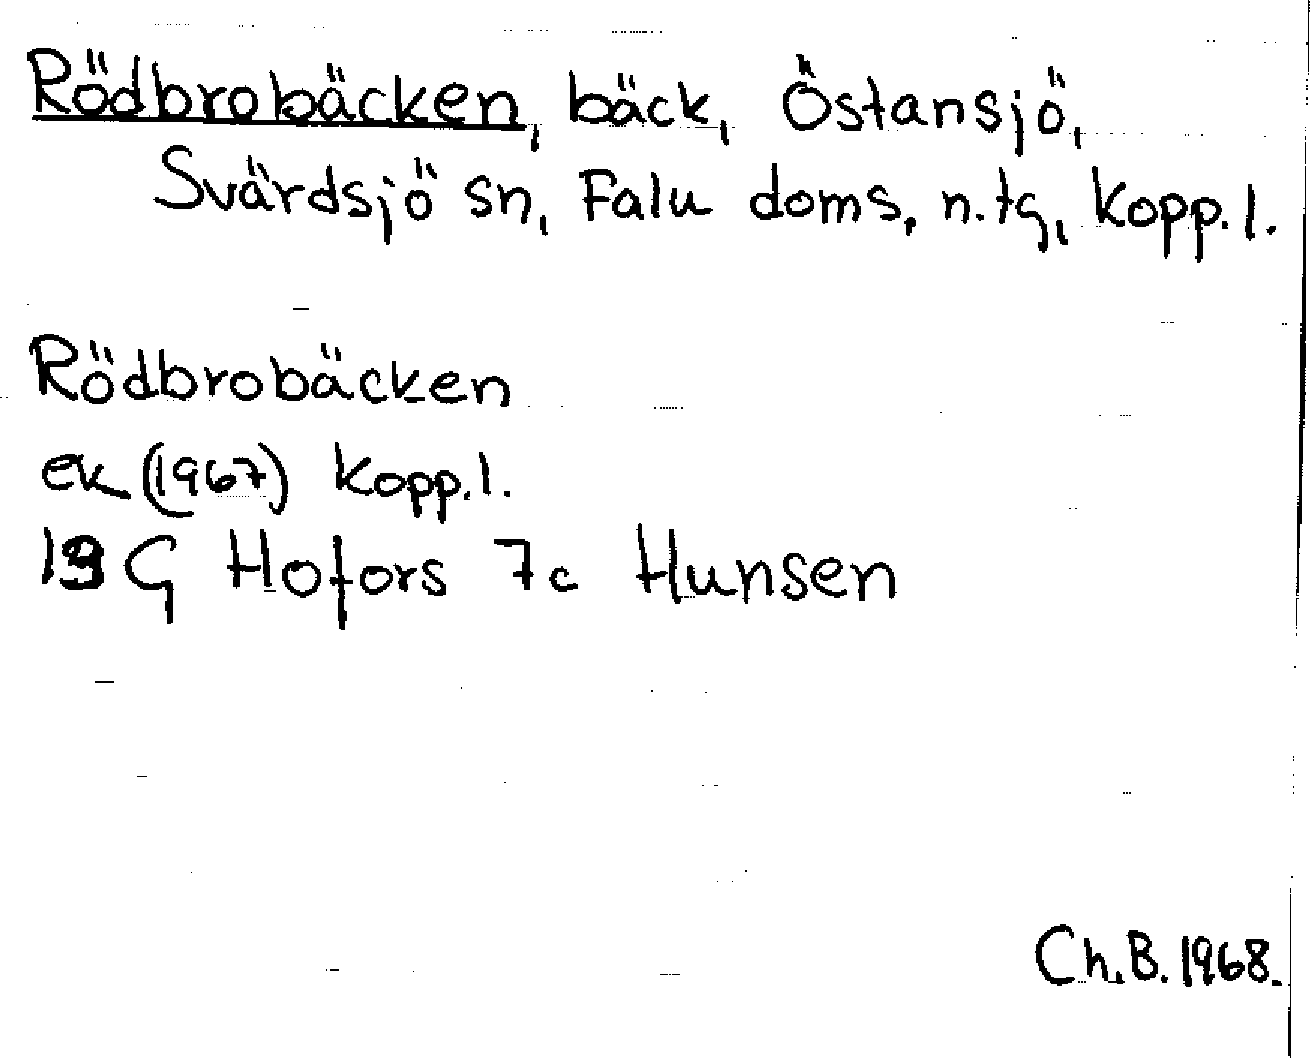 Rödbrobäcken, bäck, Östansjö,
Svärdsjö sn, Falu doms. n.tg, Kopp.l.
Rödbrobäcken
ek (1967) Kopp.l.
13 G Hofors 7c Hunsen
Ch.B. 1968.